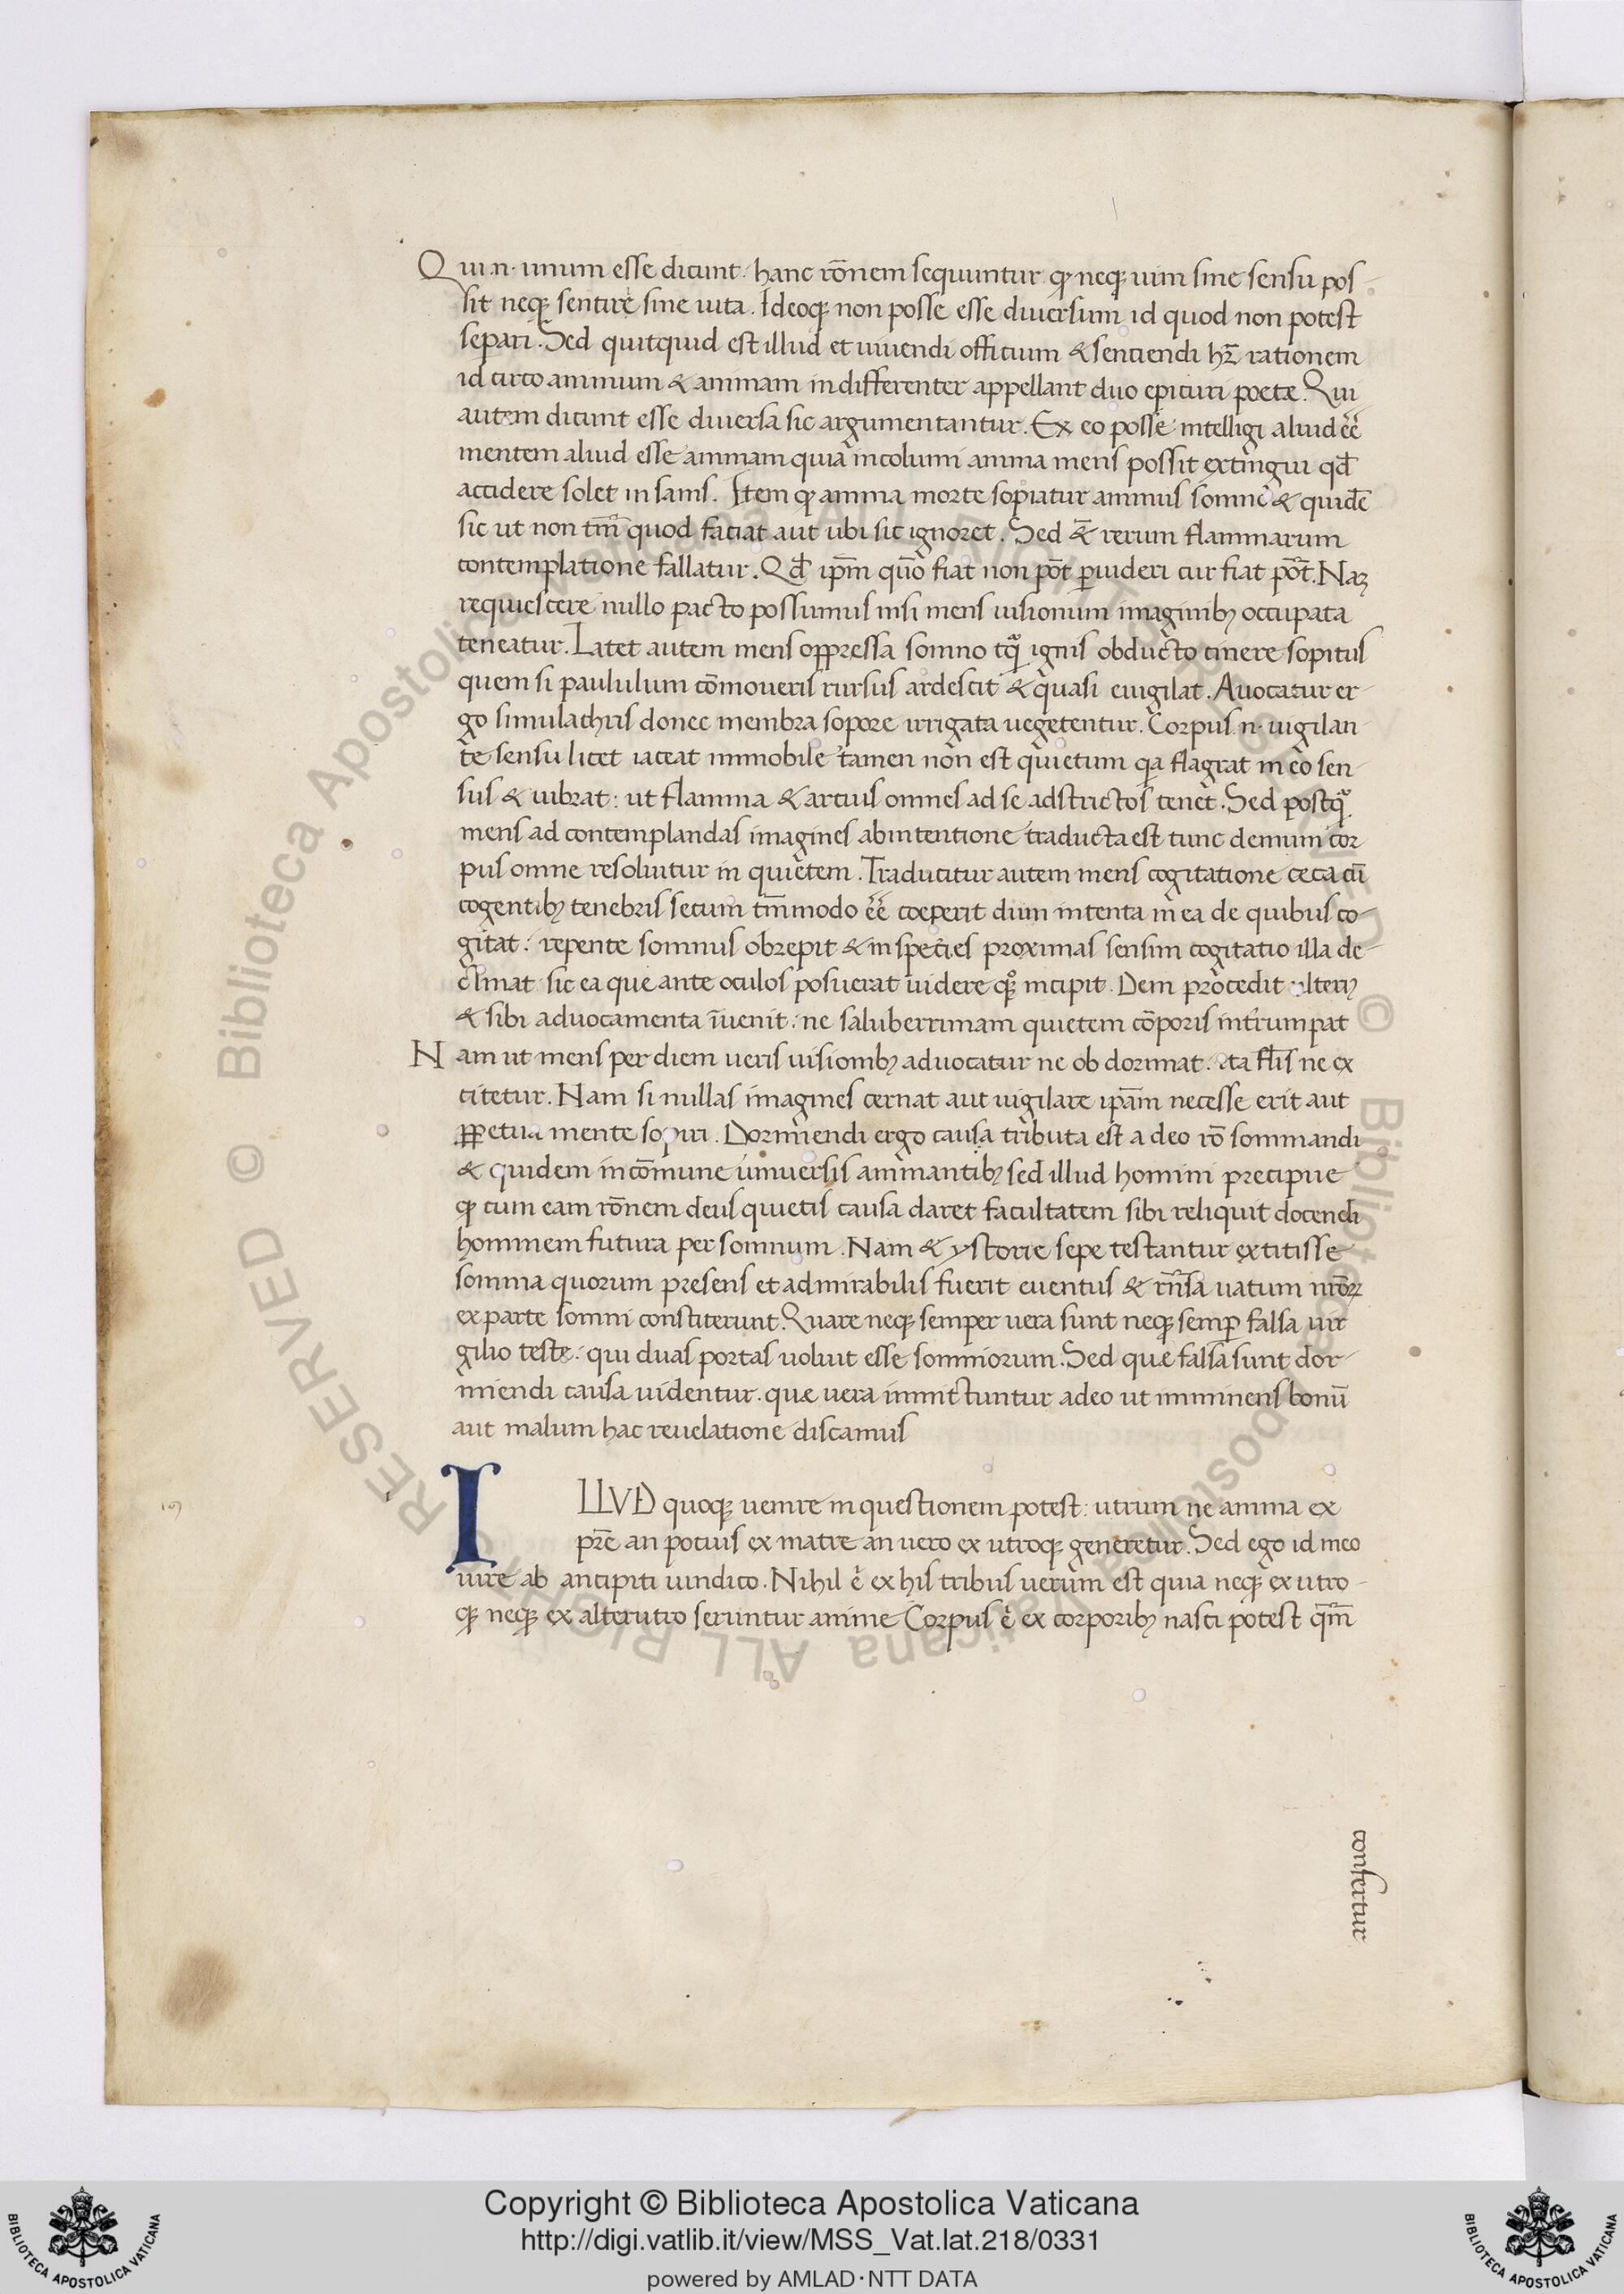 Qui .n. unum esse dicunt. hanc rōnem sequuntur. ꝙ neqꝫ uiui sine sensu pos
sit neqꝫ sentire sine uita. Ideoqꝫ non posse esse diuersum id quod non potest
separi. Sed quitquid est illud et uiuendi officium & sentiendi hꝫ rationem
id circo animum & animam indifferenter appellant duo epicuri poetæ. Qui
autem dicunt esse diuersa sic argumentantur. Ex eo posse intelligi aliud eē
mentem aliud esse animam quia incolumi anima mens possit extingui qđ
accidere solet in sanis. Item ꝙ anima morte sopiatur animus somno & quidē
sic ut non tm̄ quod faciat aut ubi sit ignoret. Sed & rerum flammarum
contemplatione fallatur. Qđ ip̄m quō fiat non pōt ꝑuideri cur fiat pōt. Naꝫ
requiescere nullo pacto possumus nisi mens uisionum imaginibꝫ occupata
teneatur. Latet autem mens oppressa somno tq̄ ignis obducto cinere sopitus
quem si paululum cōmoueris rursus ardescit & quasi euigilat. Auocatur er-
go simulachris donec membra sopore irrigata uegetentur. Corpus .n. uigilan-
te sensu licet iaceat immobile tamen non est quietum qia flagrat in eo sen-
sus & uibrat: ut flamma & artus omnes ad se adstrictos tenet. Sed postq̄
mens ad contemplandas imagines ab intentione traducta est tunc demum cor
pus omne resoluitur in quietem. Traducitur autem mens cogitatione ceca cū
cogentibꝫ tenebris secum tm̄modo eē coeperit dum intenta in ea de quibus co-
gitat: repente somnus obrepit & in species proximas sensim cogitatio illa de-
clinat sic ea que ante oculos posuerat uidere qꝫ incipit. Dein procedit ulteriꝰ
& sibi aduocamenta īuenit: ne saluberrimam quietem corporis intrumpat
Nam ut mens per diem ueris uisionibꝫ aduocatur ne ob dormiat. ita fl̄is ne ex
citetur. Nam si nullas imagines cernat aut uigilare ipām necesse erit aut
ꝑpetua mente sopiri. Dormiendi ergo causa tributa est a deo rō somniandi
& quidem in cōmune uniuersis animantibꝫ sed illud homini precipue
ꝙ cum eam rōnem deus quietis causa daret facultatem sibi reliquit docendi
hominem futura per somnum. Nam & ystorie sepe testantur extitisse
somnia quorum presens et admirabilis fuerit euentus & rn̄sa uatum nr̄oꝝ
ex parte somni constiterunt. Quare neqꝫ semper uera sunt neqꝫ semꝑ falsa uir
gilio teste: qui duas portas uoluit esse somniorum. Sed quæ falsa sunt dor-
miendi causa uidentur. quæ uera immictuntur adeo ut imminens bonū
aut malum hac reuelatione discamus
ILLVD quoqꝫ uenire in questionem potest: utrum ne anima ex
pr̄e an potius ex matre an uero ex utroqꝫ generetur. Sed ego id meo
iure ab ancipiti uindico. Nihil .e. ex his tribus uerum est quia neqꝫ ex utro-
qꝫ neqꝫ ex alterutro seruntur anime Corpus .e. ex corporibꝫ nasci potest qm̄
confertur
Copyright © Biblioteca Apostolica Vaticana
http://digi.vatlib.it/view/MSS_Vat.lat.218/0331
powered by AMLAD·NTT DATA